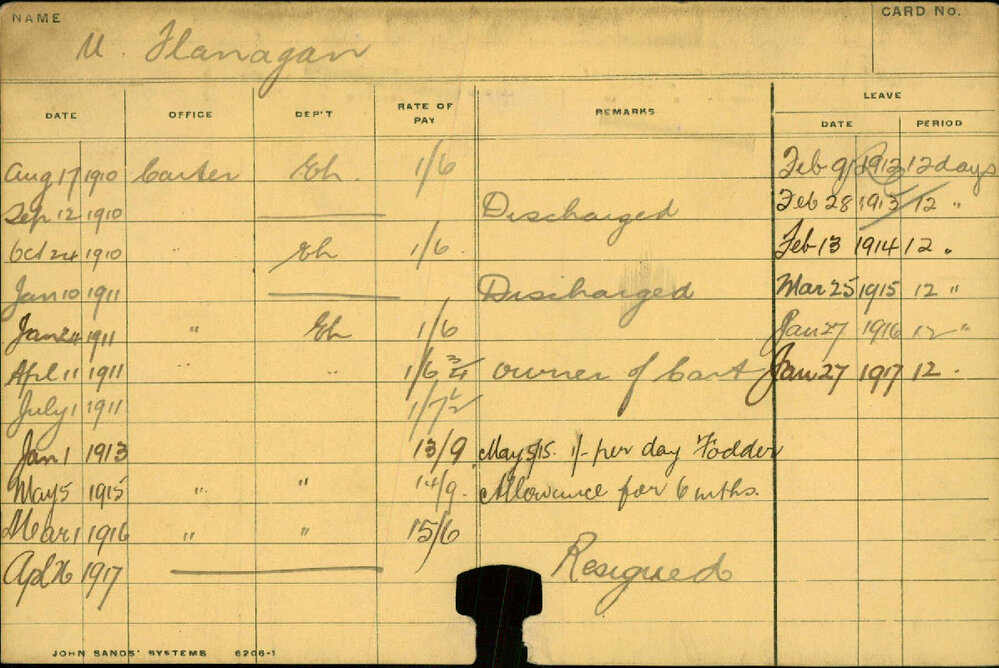 NAME CARD No.
M. Flanagan
LEAVE
DATE OFFICE DEP'T RATE OF PAY REMARKS DATE PERIOD
Aug 17 1910 Carter Eh. 1/6 Feb 9 1912 12 days
Sep 12 1910 Discharged Feb 28 1913 12 "
Oct 24 1910 Eh 1/6 Feb 13 1914 12 "
Jan 10 1911 Discharged Mar 25 1915 12 "
Jan 24 1911 " Eh 1/6 Jan 27 1916 12 "
April 11 1911 " " 1/6 3/4 Owner of Cart Jan 27 1917 12 "
July 1 1911 1/7 1/2
Jan 1 1913 13/9 May 5/15. 1/- per day Fodder
May 5 1915 " " 14/9. Allowance for 6 mths.
Mar 1 1916 " " 15/6
Apl 26 1917 Resigned
JOHN SANDS' SYSTEMS 6206-1